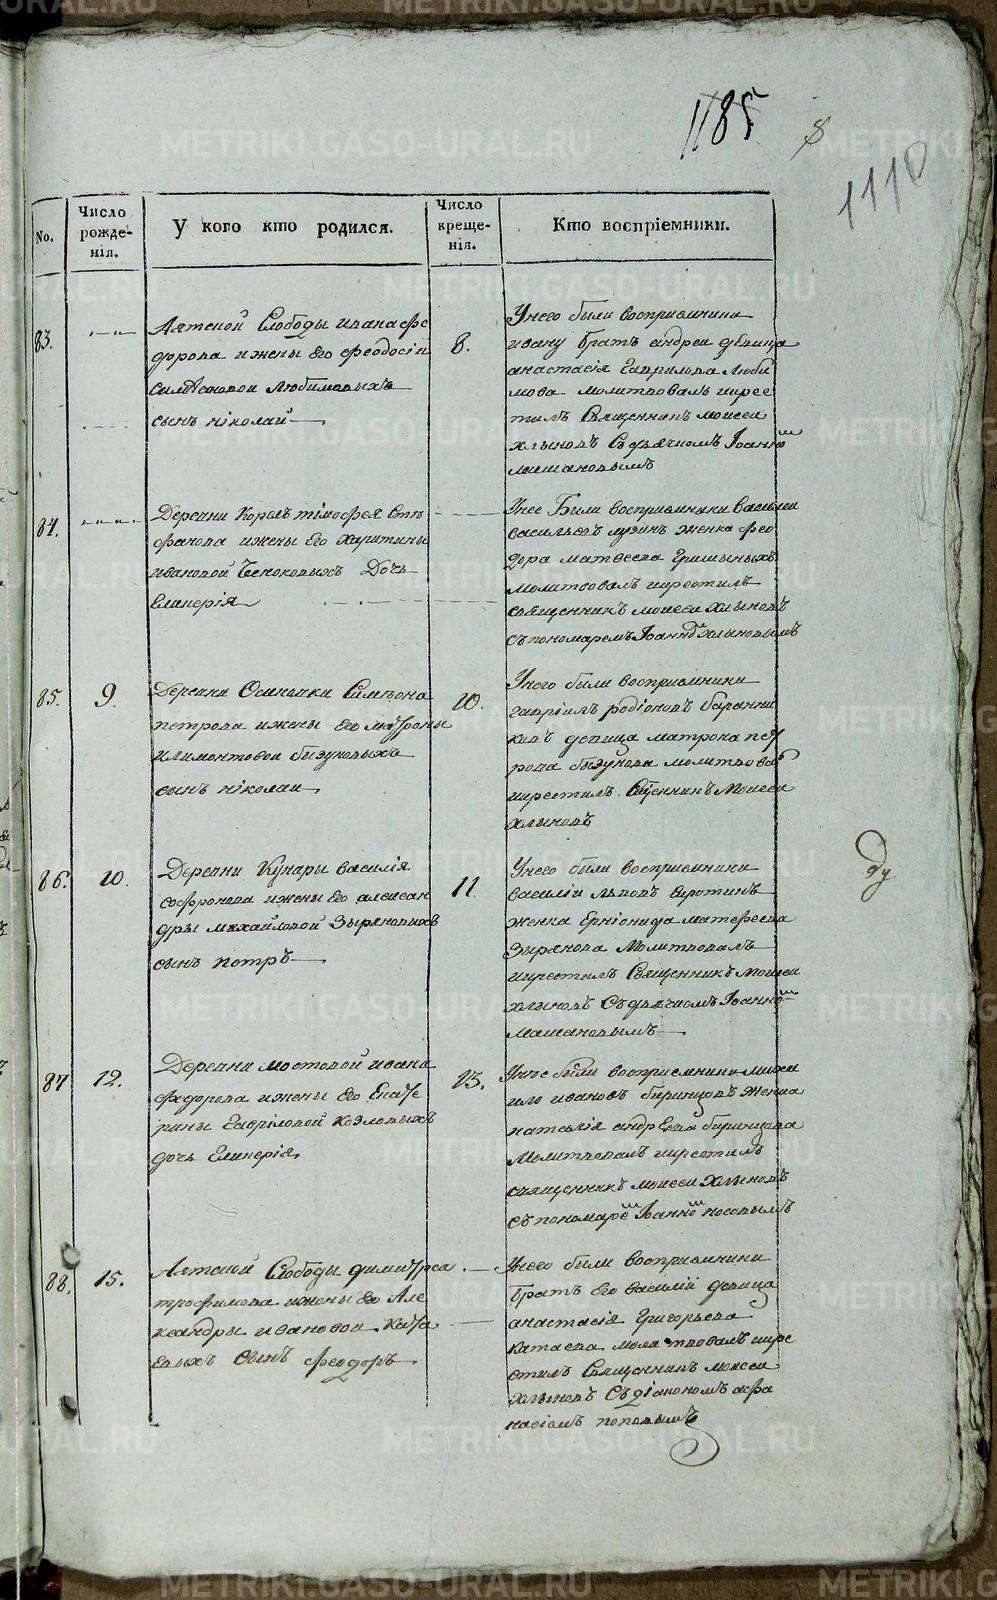 1185
1110
No.
Число рожде-нія.
У кого кто родился.
Число креще-нія.
Кто воспріемники.
83.
Аятской Слободы ивана фе
дорова ижены его феодосіи
Любимовыхъ
сынъ ніколай
8.
Унего были восприемники
ивану братъ андреи девица
анастасія Гаврилова люби
мова молитвовалъ икрес
тилъ Священникъ моисеи
хлыновъ Сдьячкомъ Іоанномъ
84.
Деревни тімофея Сте
фанова ижены его харитины
ивановой Дочь
Гликерія
Унее Были восприемники василеи
васильевъ женка фео
дора матвеева
молитвовалъ икрестилъ
священникъ моисеи хлыновъ
съпономаремъ Іоанномъ хлыновымъ
85.
9.
Деревни Осиновки Симеона
петрова ижены его матроны
климонтовои бызуновыхъ
сынъ ніколаи
10.
Унего были восприемники
гавріилъ родіоновъ баранни
ковъ девица матрона пет
рова бызунова молитвовалъ
икрестилъ Свщенникъ Моисеи
хлыновъ
86.
10.
Деревни Кунары василія
софронова ижены его алексан
дры михайловой Зыряновыхъ
сынъ петръ
11.
Унего были восприемники
василіи львовъ Сиротинъ
женка матфеева
Зырянова Молитвовалъ
икрестилъ Священникъ Моисеи
хлыновъ Сдьячкомъ Іоанномъ
87
12.
Деревни мостовой ивана
федорова ижены его Екате
рины Гавріловой козловыхъ
дочь Гликерія
13.
Унее были восприемники михаи
ило ивановъ биринцовъ женка
наталія андреева биринцова
Молитвовалъ икрестилъ
священникъ моисеи хлыновъ
съпономаремъ Іоанномъ носовымъ
88.
15.
Аятской Слободы димитрея
трофимова ижены его Але
ксандры ивановои Ката
евыхъ Сынъ феодоръ
Унего были восприемники
братъ его василій девица
анастасія Григорьева
катаева молитвовалъ икре
стилъ Священникъ моисеи
хлыновъ Съдіакономъ афа
насіемъ поповымъ